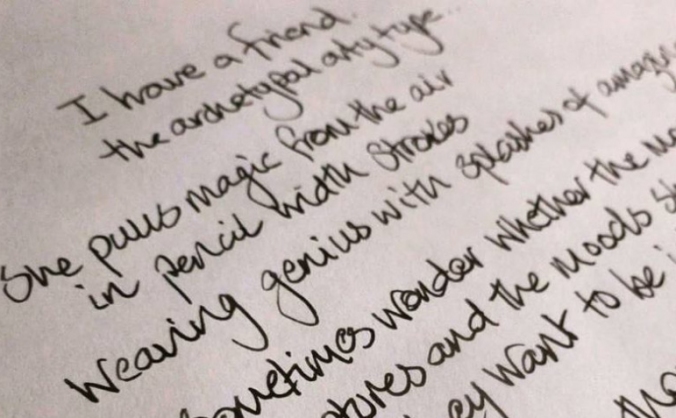 I have a friend.
the archetypal arty type...
She pulls magic from the air
in pencil width strokes
Weaving genius with splashes of
sometimes wonder whether the
and the moods
want to be